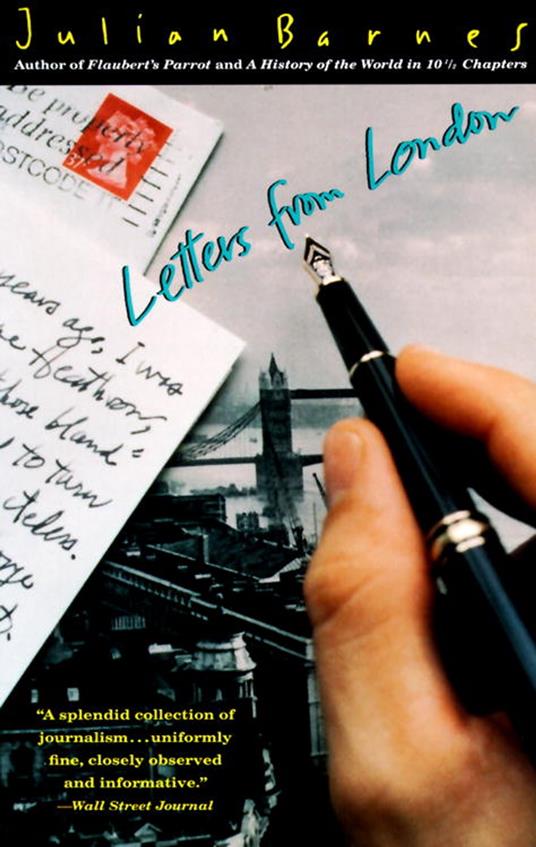 Julian Barnes
Author of Flaubert's Parrot and A History of the World in 10½ Chapters
Be properly
addressed
POSTCODE IT
37
Letters from London
years ago, I was
Heathrow,
those bland-
to turn
“A splendid collection of
journalism...uniformly
fine, closely observed
and informative.”
—Wall Street Journal